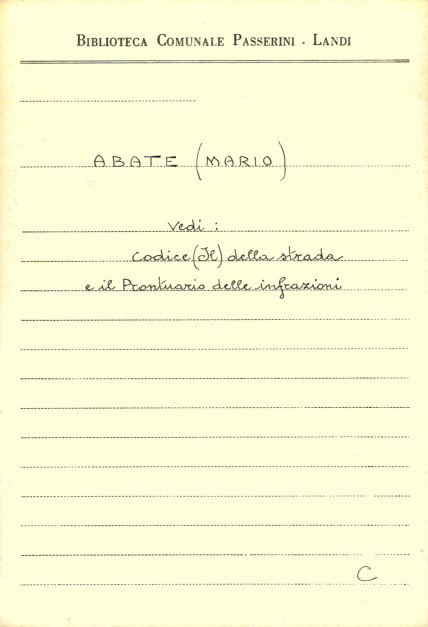 BIBLIOTECA COMUNALE PASSERINI - LANDI
ABATE (MARIO)
Vedi :
Codice (Il) della strada
e il Prontuario delle infrazioni
C